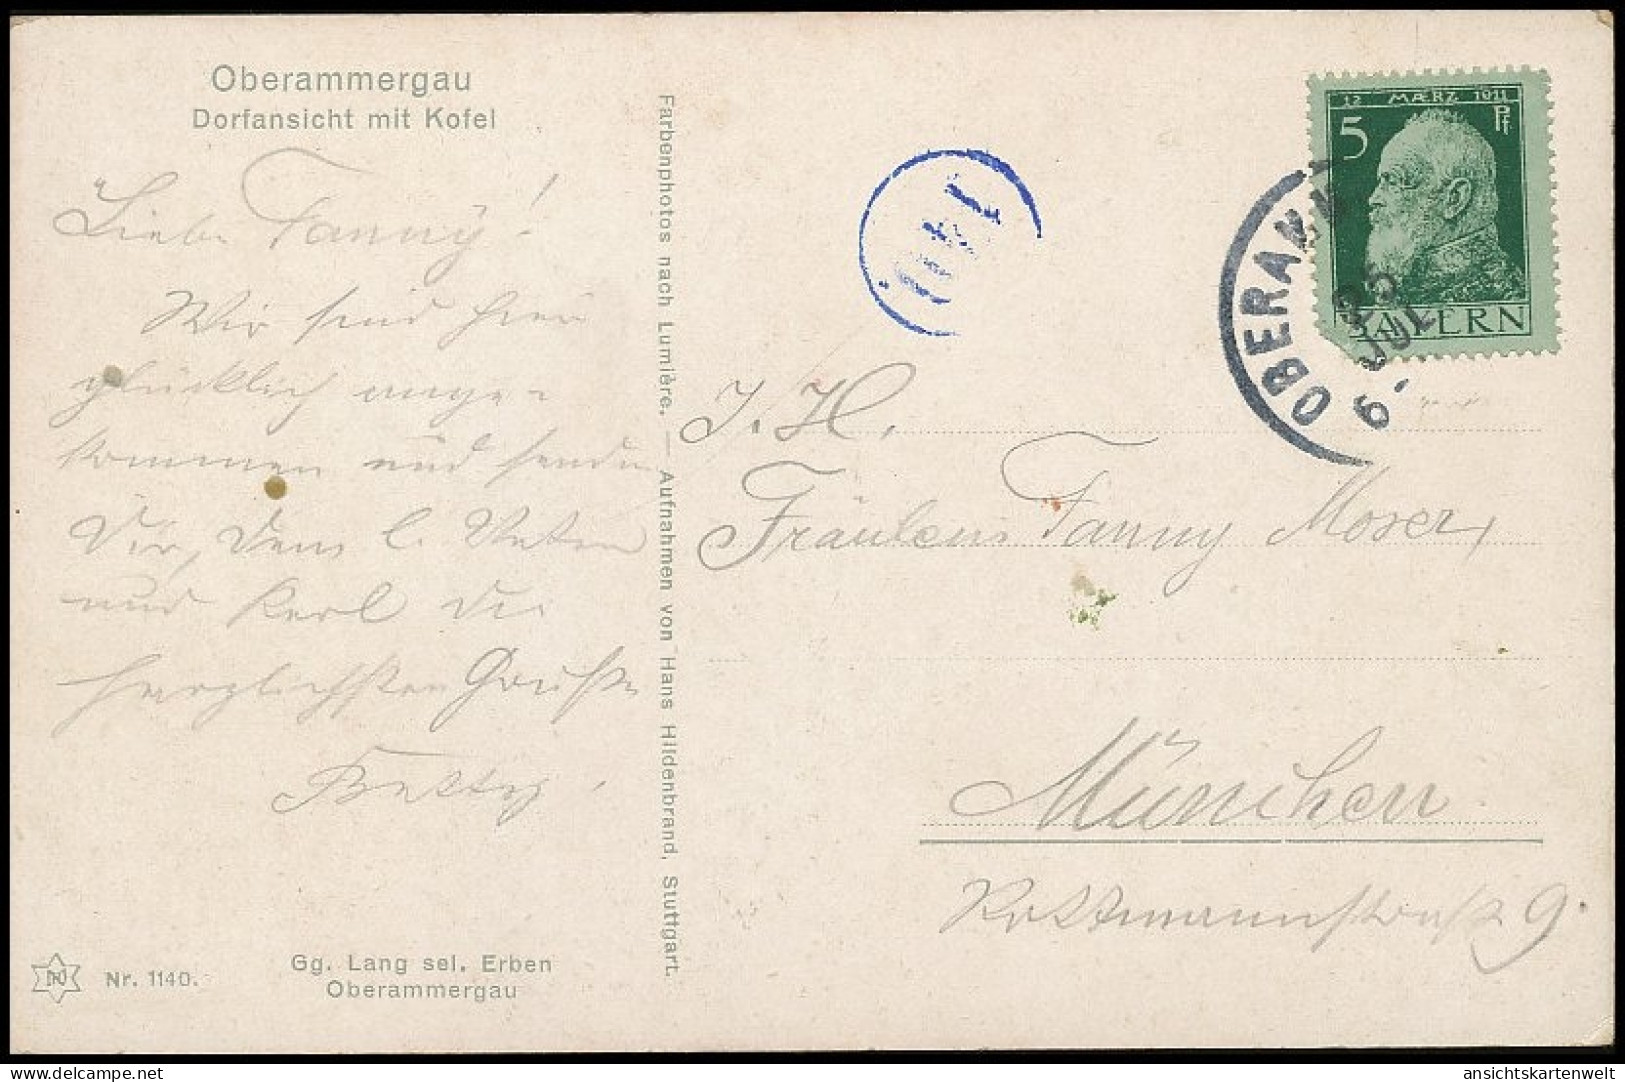 Oberammergau
Dorfansicht mit Kofel
Liebe Fanny!
Wir sind hier
glücklich ange-
kommen und senden
Dir, dem l. Vater
und Karl die
herzlichsten Grüße
Betty.
Gg. Lang sel. Erben
Oberammergau
Nr. 1140.
Farbenphotos nach Lumière. — Aufnahmen von Hans Hildenbrand, Stuttgart.
12 MÆRZ 1911
5 Pf
BAYERN
OBERAMM
25
JUL
9.
I. H.
Fräulein Fanny Moser,
München
Rottmannstraße 9.
delcampe.net
ansichtskartenwelt